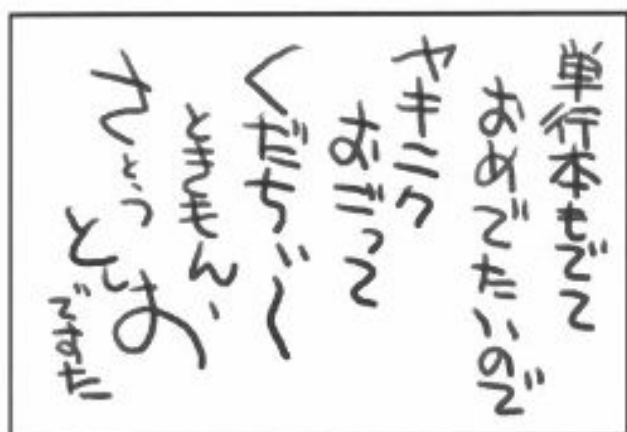 単行本もでて
おめでたいので
ヤキニク
おごって
くだちぃ〜
ときもん、
さとう
としお
ですた